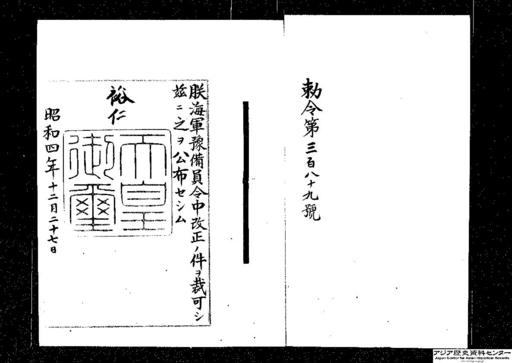 勅令第三百八十九號
朕海軍豫備員令中改正ノ件ヲ裁可シ
茲ニ之ヲ公布セシム
裕仁
天皇
御璽
昭和四年十二月二十七日
アジア歴史資料センター
Japan Center for Asian Historical Records